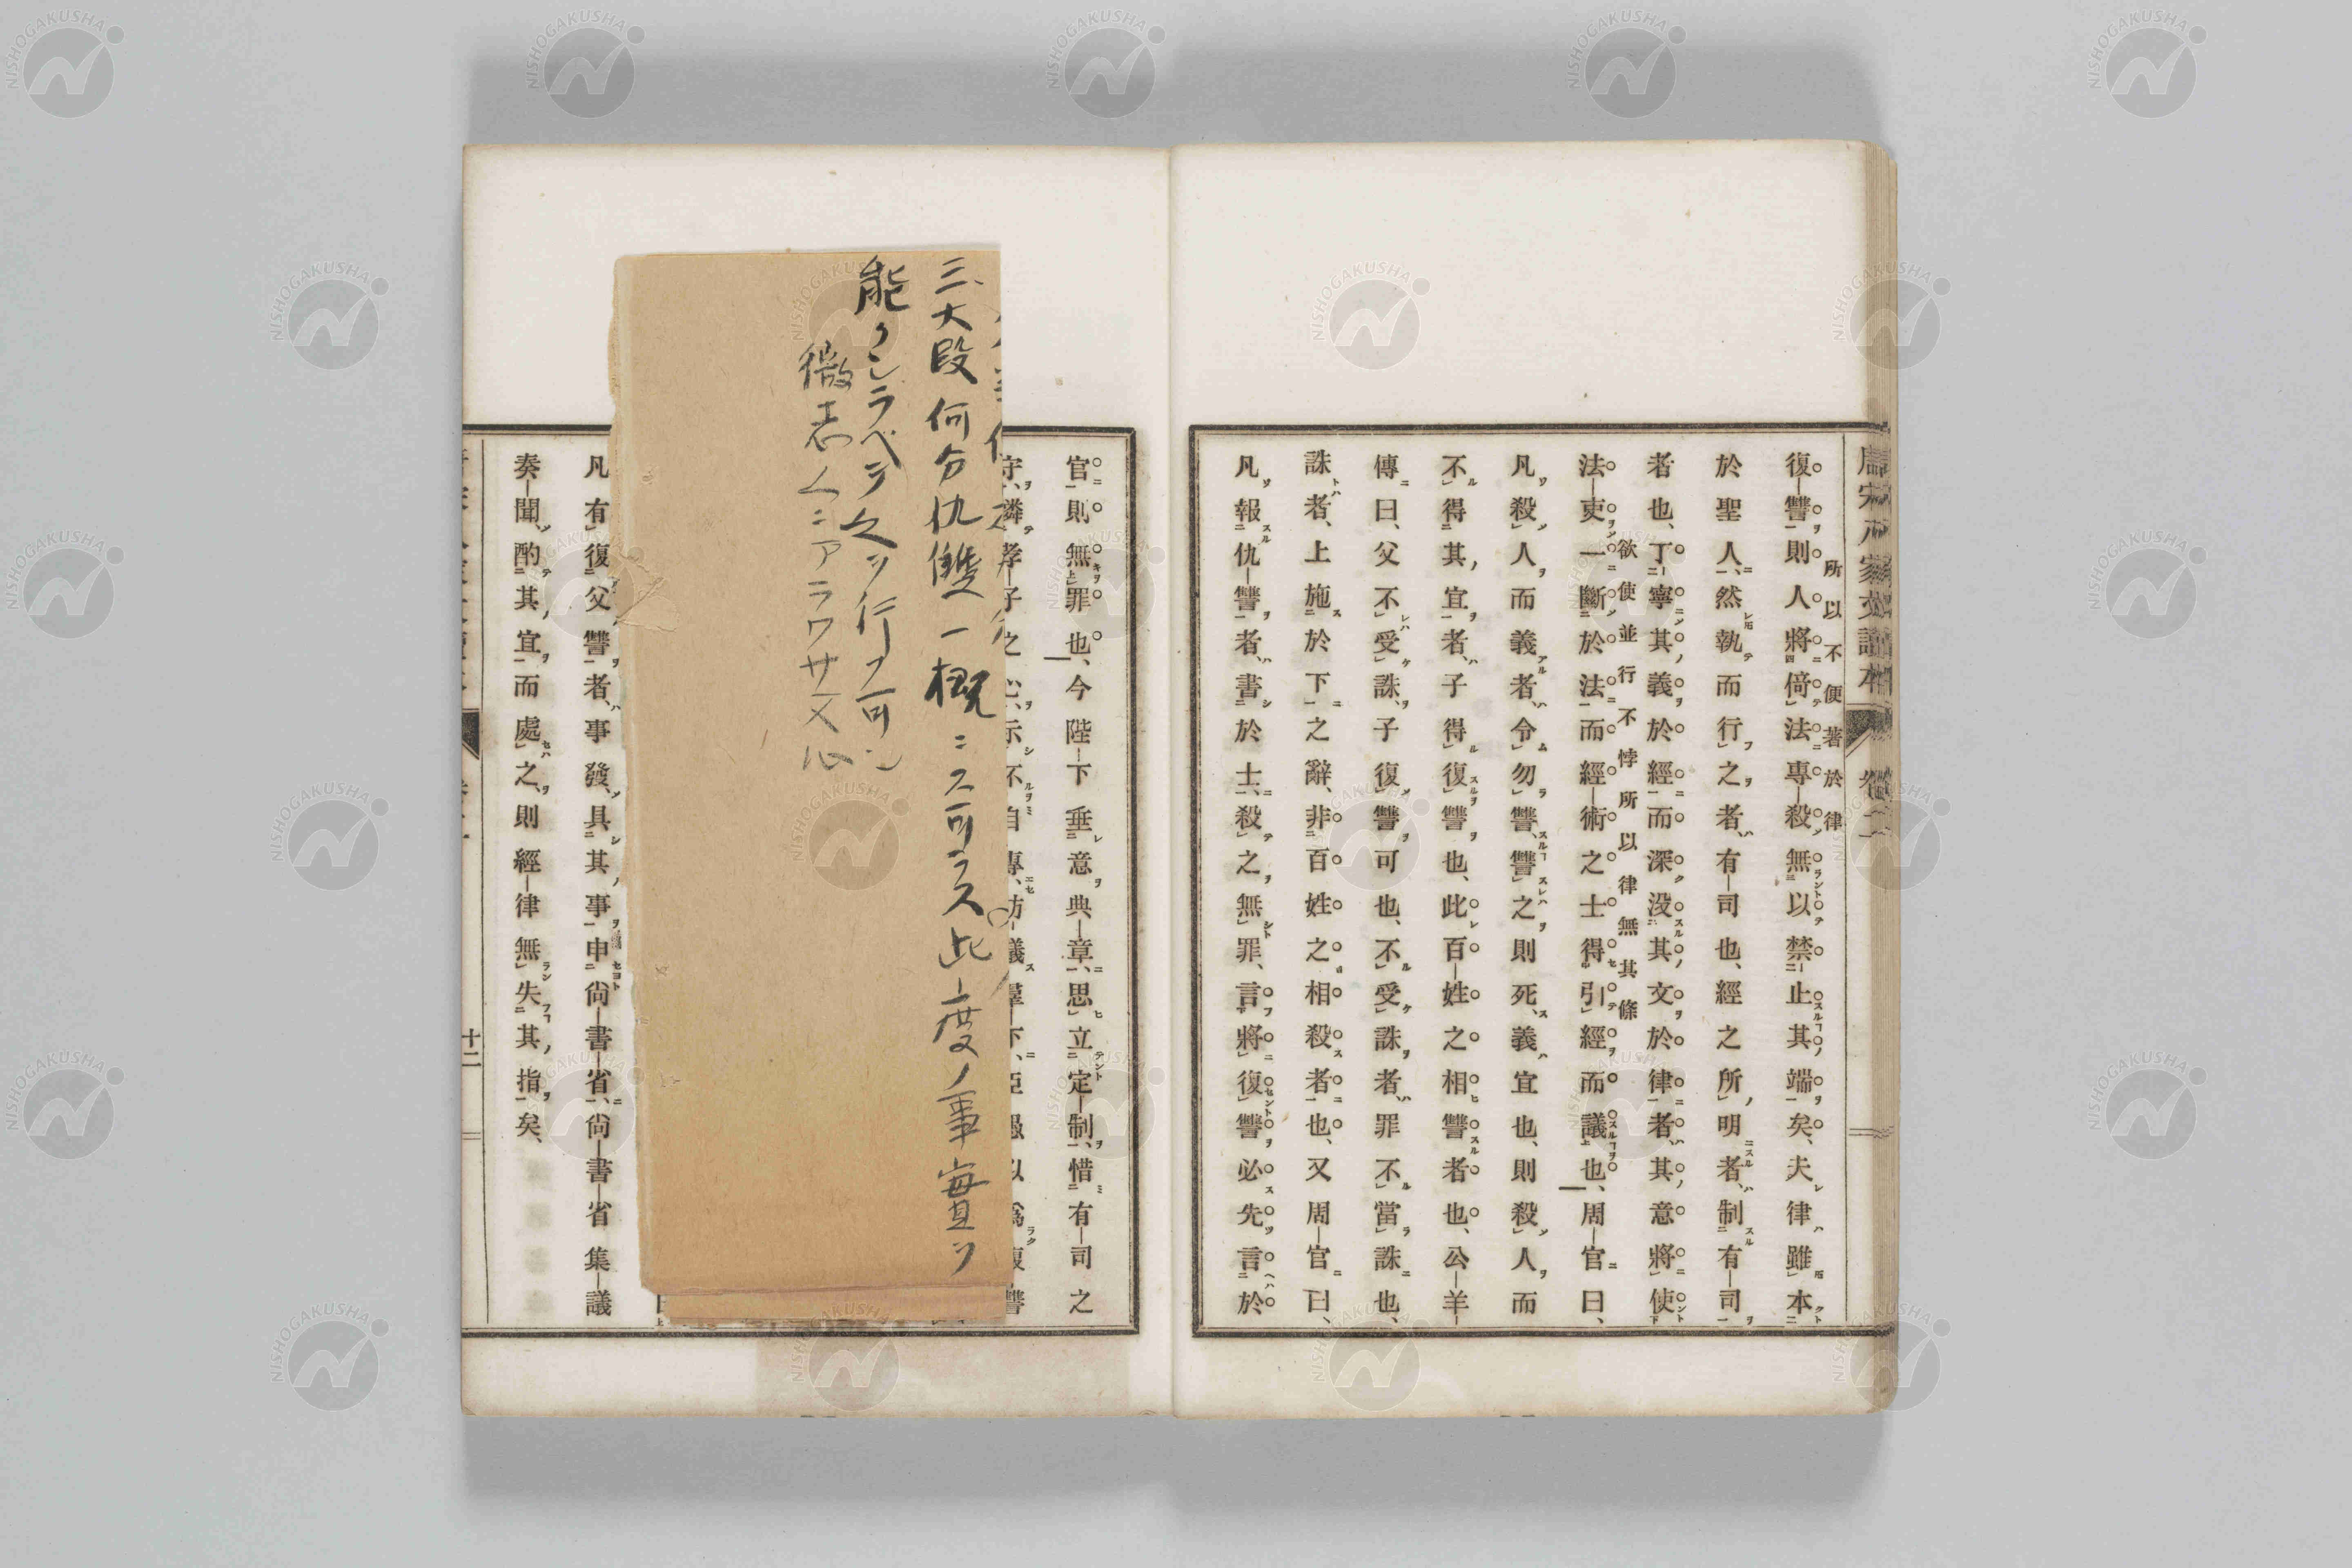 唐宋八家文讀本 卷二
復讐則人將倚法專殺無以禁止其端矣、夫律雖本
所以不便著於律
於聖人、然執而行之者、有司也、經之所明者、制有司
者也、丁寧其義於經而深沒其文於律者、其意將使
欲使並行不悖所以律無其條
法吏一斷於法而經術之士得引經而議也、周官曰、
凡殺人而義者、令勿讐、讐之則死、義宜也、則殺人而
不得其宜者、子得復讐也、此百姓之相讐者也、公羊
傳曰、父不受誅、子復讐可也、不受誅者、罪不當誅也、
誅者、上施於下之辭、非百姓之相殺者也、又周官曰、
凡報仇讐者、書於士、殺之無罪、言將復讐必先言於
官則無罪也、今陛下垂意典章、思立定制、惜有司之
守、憐孝子之心、示不自專、訪議羣下、臣愚以爲復讐
三、大段何分仇雙一概ニス可ラス此度ノ事實ツ
能クシラベテ
行フ可シ
微志
ニアラワサヌ心
凡有復父讐者、事發、具其事申尙書省、尙書省集議
奏聞、酌其宜而處之、則經律無失其指矣、
十二
NISHOGAKUSHA